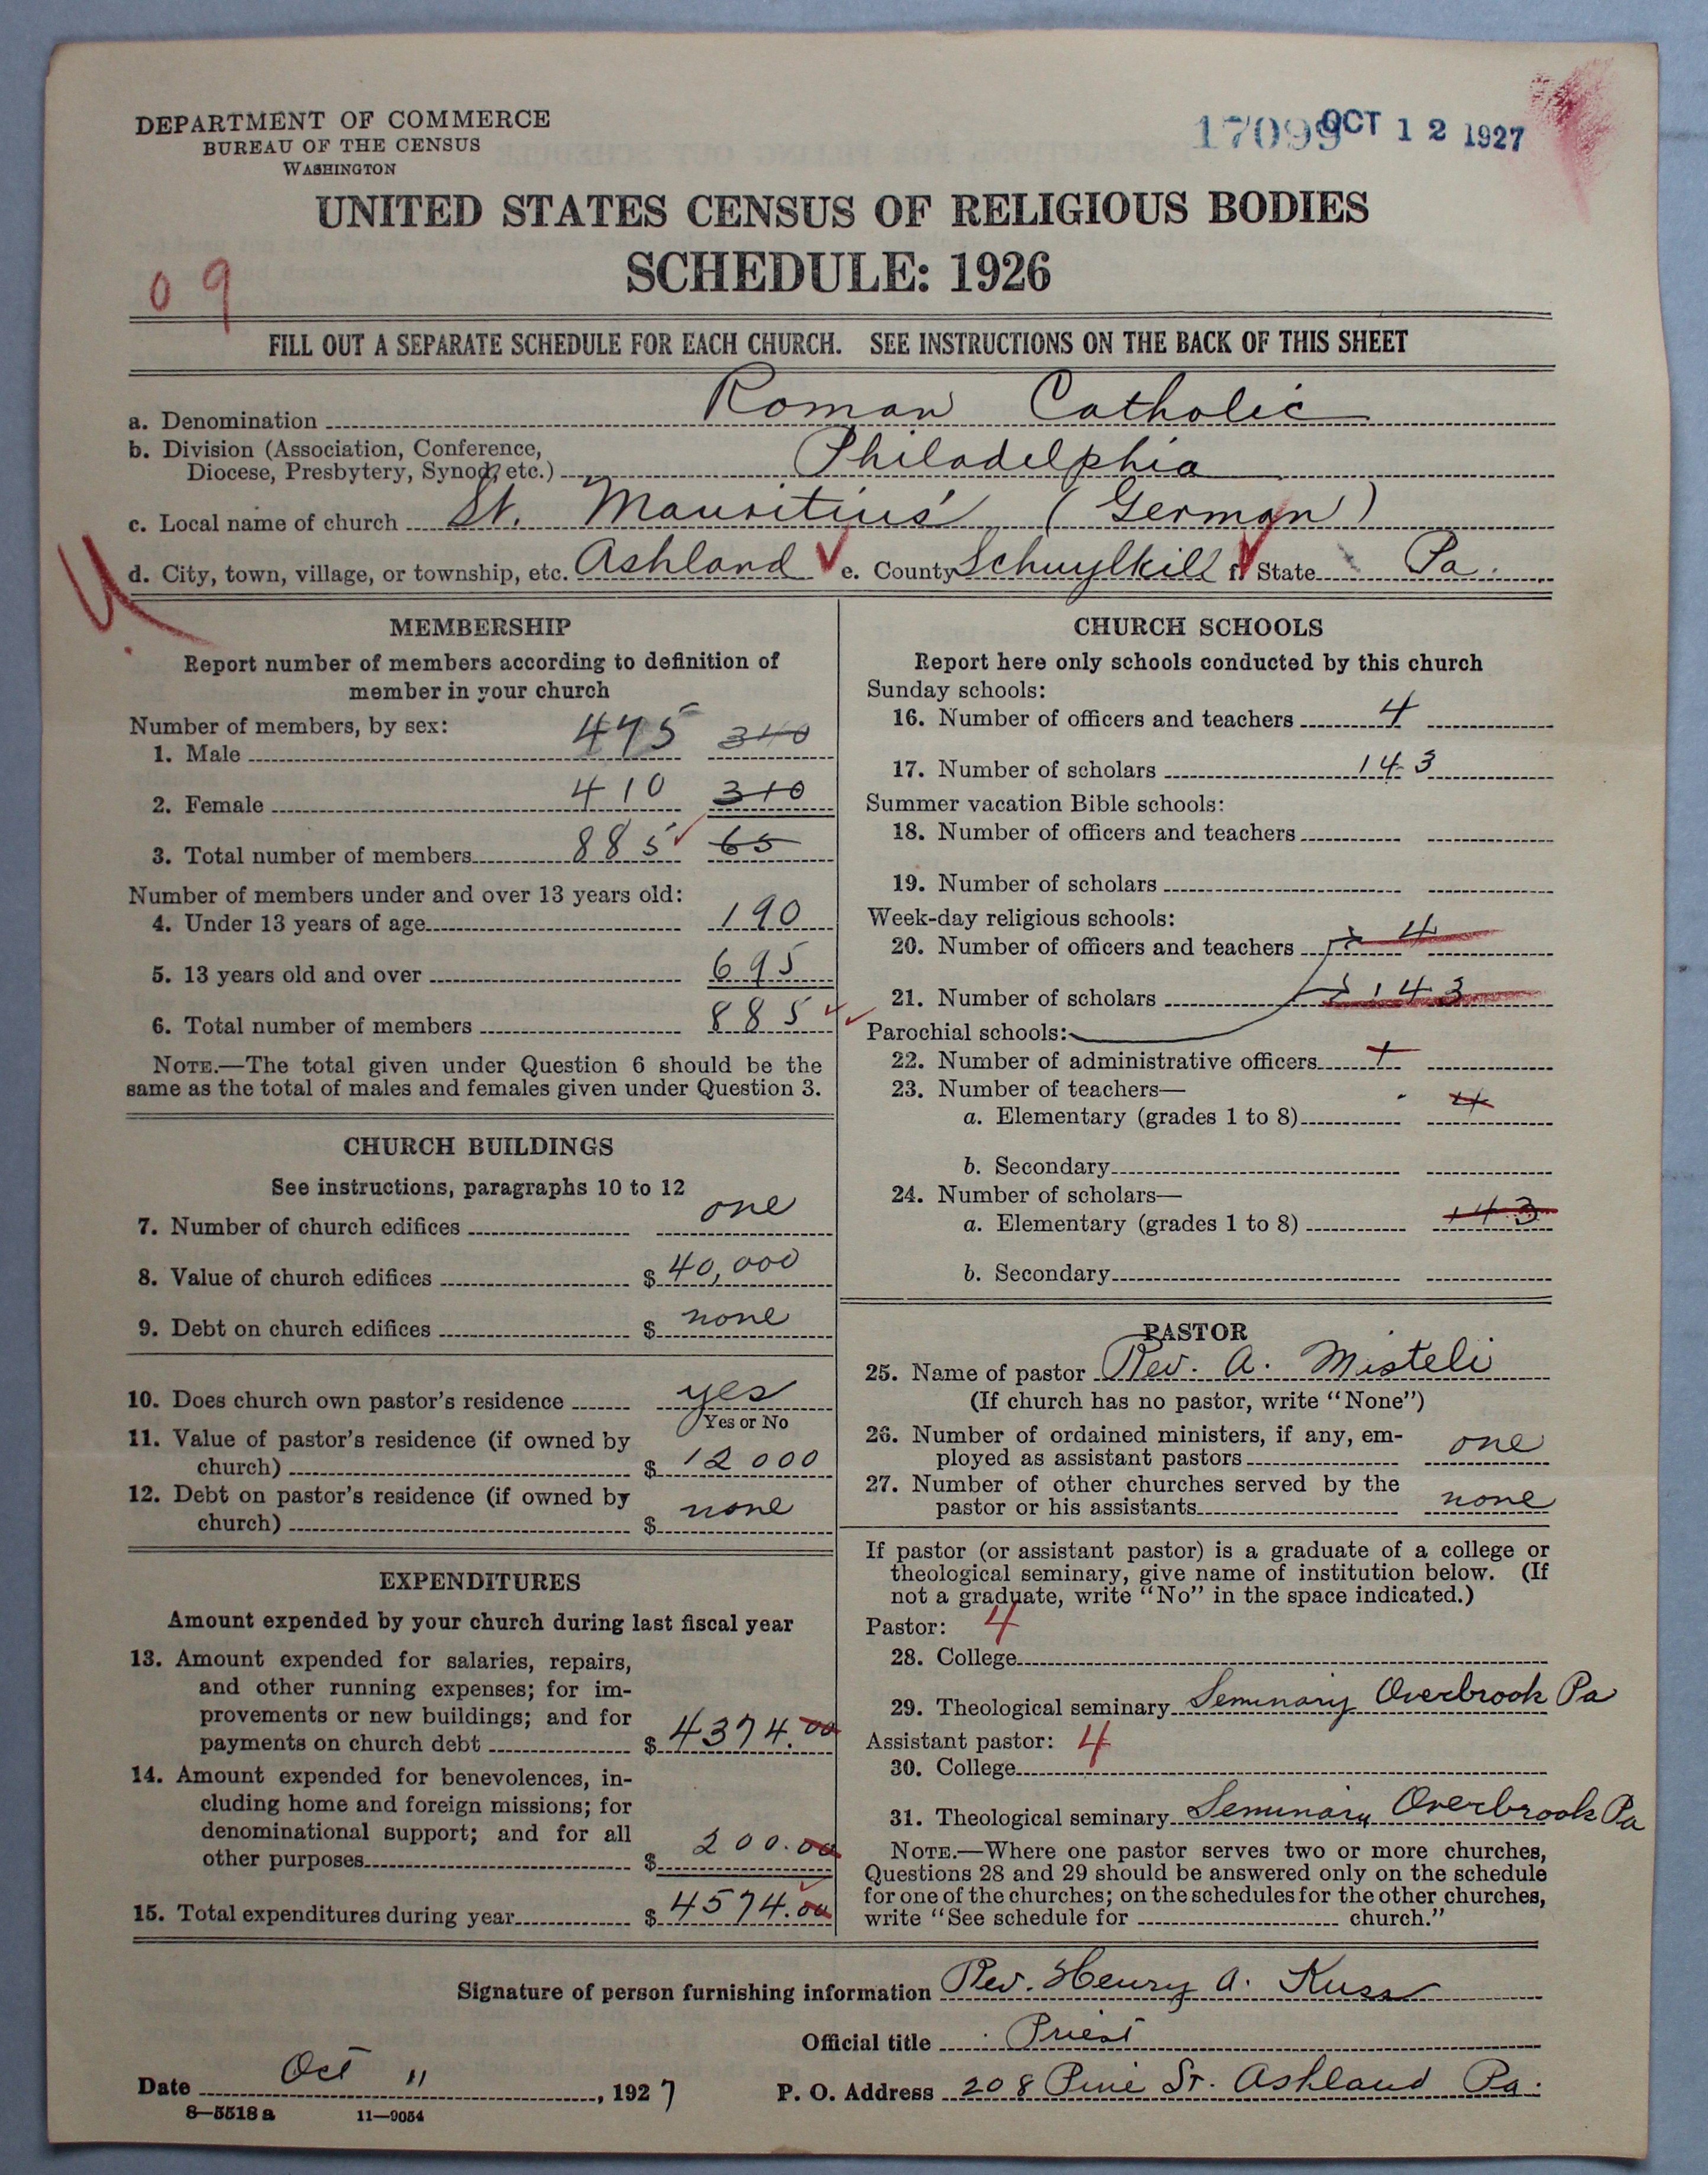 DEPARTMENT OF COMMERCE
BUREAU OF THE CENSUS
WASHINGTON
17099 OCT 12 1927
UNITED STATES CENSUS OF RELIGIOUS BODIES
SCHEDULE: 1926
09
FILL OUT A SEPARATE SCHEDULE FOR EACH CHURCH. SEE INSTRUCTIONS ON THE BACK OF THIS SHEET
a. Denomination Roman Catholic
b. Division (Association, Conference,
Diocese, Presbytery, Synod, etc.) Philadelphia
c. Local name of church St. Mauritius' (German)
d. City, town, village, or township, etc. Ashland e. County Schuylkill f. State Pa.
MEMBERSHIP
Report number of members according to definition of
member in your church
Number of members, by sex:
1. Male 475 340
2. Female 410 310
3. Total number of members 885 65
Number of members under and over 13 years old:
4. Under 13 years of age 190
5. 13 years old and over 695
6. Total number of members 885
NOTE.—The total given under Question 6 should be the
same as the total of males and females given under Question 3.
CHURCH BUILDINGS
See instructions, paragraphs 10 to 12
7. Number of church edifices one
8. Value of church edifices $ 40,000
9. Debt on church edifices $ none
10. Does church own pastor's residence yes
Yes or No
11. Value of pastor's residence (if owned by
church) $ 12000
12. Debt on pastor's residence (if owned by
church) $ none
EXPENDITURES
Amount expended by your church during last fiscal year
13. Amount expended for salaries, repairs,
and other running expenses; for im-
provements or new buildings; and for
payments on church debt $ 4374.00
14. Amount expended for benevolences, in-
cluding home and foreign missions; for
denominational support; and for all
other purposes $ 200.00
15. Total expenditures during year $ 4574.00
CHURCH SCHOOLS
Report here only schools conducted by this church
Sunday schools:
16. Number of officers and teachers 4
17. Number of scholars 143
Summer vacation Bible schools:
18. Number of officers and teachers
19. Number of scholars
Week-day religious schools:
20. Number of officers and teachers 4
21. Number of scholars 143
Parochial schools:
22. Number of administrative officers 1
23. Number of teachers—
a. Elementary (grades 1 to 8) 4
b. Secondary
24. Number of scholars—
a. Elementary (grades 1 to 8) 143
b. Secondary
PASTOR
25. Name of pastor Rev. A. Misteli
(If church has no pastor, write "None")
26. Number of ordained ministers, if any, em-
ployed as assistant pastors one
27. Number of other churches served by the
pastor or his assistants none
If pastor (or assistant pastor) is a graduate of a college or
theological seminary, give name of institution below. (If
not a graduate, write "No" in the space indicated.)
Pastor: 4
28. College
29. Theological seminary Seminary Overbrook Pa
Assistant pastor: 4
30. College
31. Theological seminary Seminary Overbrook Pa
NOTE.—Where one pastor serves two or more churches,
Questions 28 and 29 should be answered only on the schedule
for one of the churches; on the schedules for the other churches,
write "See schedule for church."
Signature of person furnishing information Rev. Henry A. Kuss
Official title Priest
Date Oct 11, 1927 P. O. Address 208 Pine St. Ashland Pa.
8—5518a 11—9054